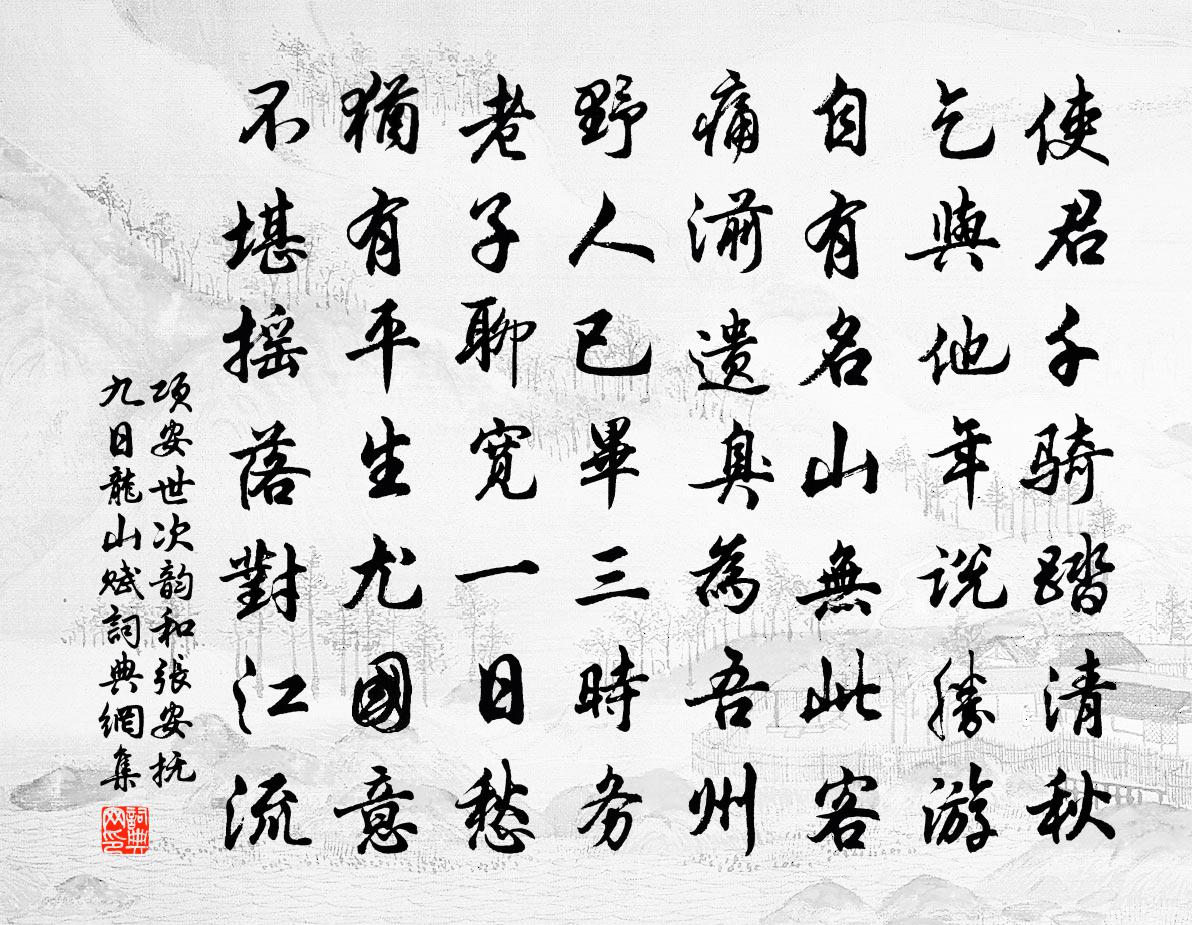 使君千骑踏清秋
乞與他年説勝游
自有名山無此客
痛湔遗臭為吾州
野人已畢三時务
老子聊宽一日愁
猶有平生尤國意
不堪摇落對江流
项安世次韵和張安抚
九日龍山赋詞典網集
詞典
网印